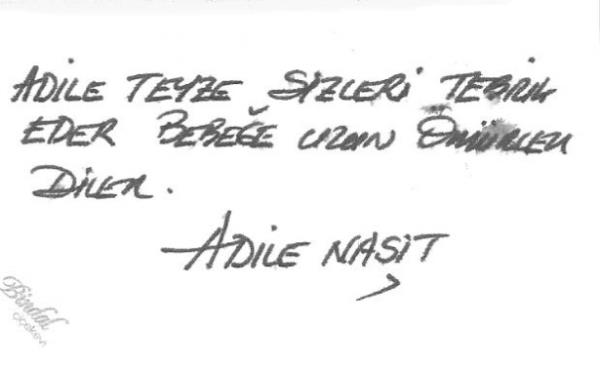 ADİLE TEYZE SİZLERİ TEBRİK
EDER BEBEĞE uzun ÖMÜRLER
DİLER.
ADİLE NAŞİT
Bindal
çiçekevi